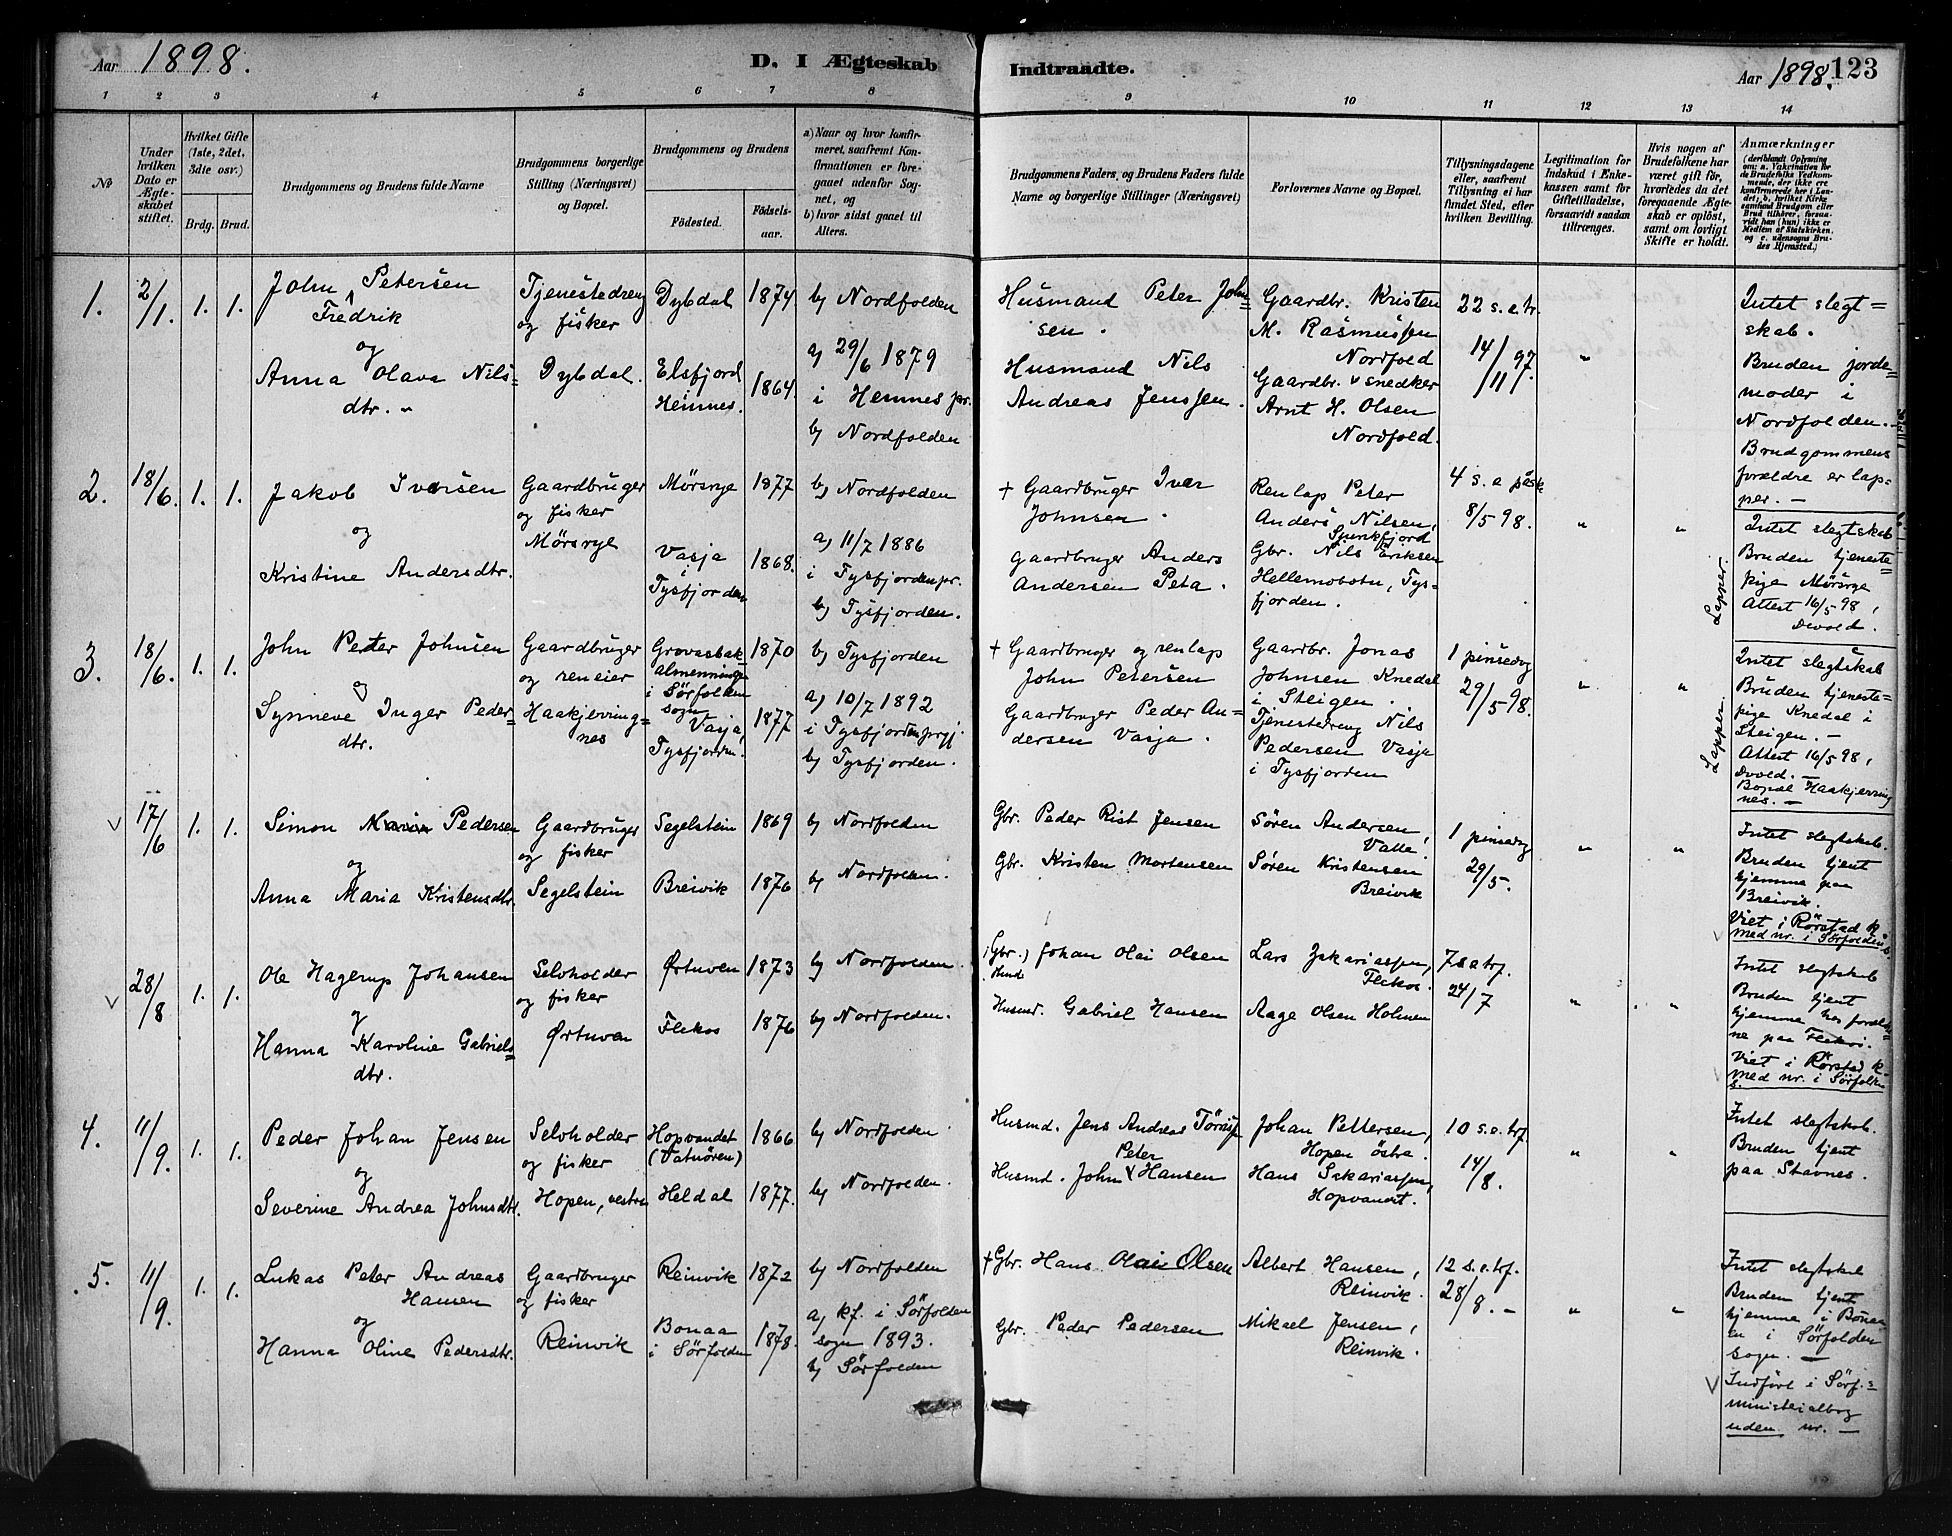 Aar 1898.
D. I Ægteskab
Indtraadte.
Aar 1898. 123
1 2 3 4 5 6 7 8 9 10 11 12 13 14
No
Under hvilken Dato er Ægteskabet stiftet.
Hvilket Gifte (1ste, 2det, 3die osv.)
Brdg. Brud.
Brudgommens og Brudens fulde Navne
Brudgommens borgerlige Stilling (Næringsvei) og Bopæl.
Brudgommens og Brudens
Fødested.
Fødselsaar.
a) Naar og hvor konfirmeret, saafremt Konfirmationen er foregaaet udenfor Sognet, og
b) hvor sidst gaaet til Alters.
Brudgommens Faders og Brudens Faders fulde Navne og borgerlige Stillinger (Næringsvei)
Forlovernes Navne og Bopæl.
Tillysningsdagene eller, saafremt Tillysning ei har fundet Sted, efter hvilken Bevilling.
Legitimation for Indskud i Enkekassen samt for Giftetilladelse, forsaavidt saadan tiltrænges.
Hvis nogen af Brudefolkene har været gift før, hvorledes da det foregaaende Ægteskab er opløst, samt om lovligt Skifte er holdt.
Anmærkninger
1. 2/1. 1. 1.
John Petersen
Fredrik
og
Anna Olava Nils-
dtr. -
Tjenestedreng
og fisker
Dybdal.
Dybdal 1874
Elsfjord
Hemnes. 1864
b) Nordfolden
a) 29/6 1879
i Hemnes pr.
b) Nordfolden
Husmand Peter John-
sen.
Husmand Nils
Andreas Jenssen.
Gaardbr. Kristen
M. Rasmussen
Nordfold
Gaardbr. v snedker
Arnt H. Olsen
Nordfold.
22 s. e. tr.
14/11 97.
"
Intet slegt=
skab.
Bruden jorde-
moder i
Nordfolden. -
Brudgommens
forældre er lap-
per. -
2. 18/6. 1. 1.
Jakob Iversen
og
Kristine Andersdtr.
Gaardbruger
og fisker
Mørsrye
Mørsrye 1877
Vasja
Tysfjorden 1868.
b) Nordfolden
a) 11/7 1886
i Tysfjorden pr.
b) Tysfjorden.
+ Gaardbruger Iver
Johnsen.
Gaardbruger Anders
Andersen Peta.
Ren lap Peter
Anders Nilsen,
Gbr. Nils Eriksen
Hellemobotn, Tys-
fjorden.
4 s. e påsk
8/5 98.
" "
Lapper.
Intet slegtskab
Bruden tjeneste-
pige Mørsrye
Attest 16/5 98,
Dvold.
3. 18/6. 1. 1.
John Peder Johnsen
og
Synneve Inger Peder-
dtr.
Gaardbruger
og reneier
Haakjerring-
nes
Grovasbak
almenninge
i Sørfolden
sogn
1870
Vasja,
Tysfjorden. 1877
b) Tysfjorden
a) 10/7 1892
i Tysfjorden prgj.
b) Tysfjorden.
+ Gaardbruger og renlap
John Petersen
Gaardbruger Peder An-
dersen Vasja.
Gaardbr. Jonas
Johnsen Knedal
i Steigen.
Tjenestedreng Nils
Pedersen Vasja
i Tysfjorden
1 pinsedag
29/5 98.
" "
Lapper.
Intet slegtskab
Bruden tjeneste-
pige Knedal i
Steigen. -
Attest 16/5 98,
Dvold. -
Bopæl Haakjerring
nes. -
v 17/6 1. 1.
Simon Pedersen
og
Anna Maria Kristensdtr.
Gaardbruger
og fisker
Segelstein
Segelstein 1869
Breivik 1876
b) Nordfolden
b) Nordfolden.
Gbr. Peder Rist Jensen
Gbr. Kristen Mortensen
Søren Andersen,
Valle.
Søren Kristensen
Breivik
1 pinsedag
29/5.
" "
Intet slegtskab.
Bruden tjent
hjemme paa
Breivik.
Viet i Rørstad k
med nr. i Sørfolden s.
v 28/8 1. 1.
Ole Hagerup Johansen
og
Hanna Karoline Gabriels-
dtr.
Selvholder
og fisker
Ørtuven
Ørtuven 1873
Flekos 1876
b) Nordfolden.
b) Nordfolden.
(Gbr.) Johan Olai Olsen
Husmd. Gabriel Hansen
Lars Zakariassen,
Flekos.
Aage Olsen Holmen
7 s e trf.
24/7
" "
Intet slegtskab
Bruden tjent
hjemme hos foræld-
ne paa Flekos.
Viet i Rørstad k.
med nr. i Sørfolden
s.
4. 11/9. 1. 1.
Peder Johan Jensen
og
Severine Andrea Johnsdtr.
Selvholder
og fisker
Hopen, vestre
Hopvandet
(Vatnøren) 1866
Heldal 1877.
b) Nordfolden.
b) Nordfolden.
Husmd. Jens Andreas
Peter
Husmd. John Hansen
Johan Pettersen,
Hopen østre.
Hans Sakariassen,
Hopvandet.
10 s. e. trf.
14/8.
" "
Intet slegtskab.
Bruden tjent
paa Stavnes.
5. 11/9. 1. 1.
Lukas Peter Andreas
Hansen
og
Hanna Oline Pedersdtr.
Gaardbruger
og fisker
Reinvik
Reinvik 1872
Bonaa
i Sørfolden 1878.
b) Nordfolden
a) kf. i Sørfolden
sogn 1893.
b) Sørfolden
+ Gbr. Hans Olai Olsen
Gbr. Peder Pedersen
Albert Hansen,
Reinvik.
Mikael Jensen,
Reinvik.
12 s. e. trf.
28/8. -
" "
Intet slegtskab
Bruden tjent
hjemme i Bonaa
en i Sørfolden
sogn. -
v Indført i Sørf.s
ministerialbog
uden nr. -